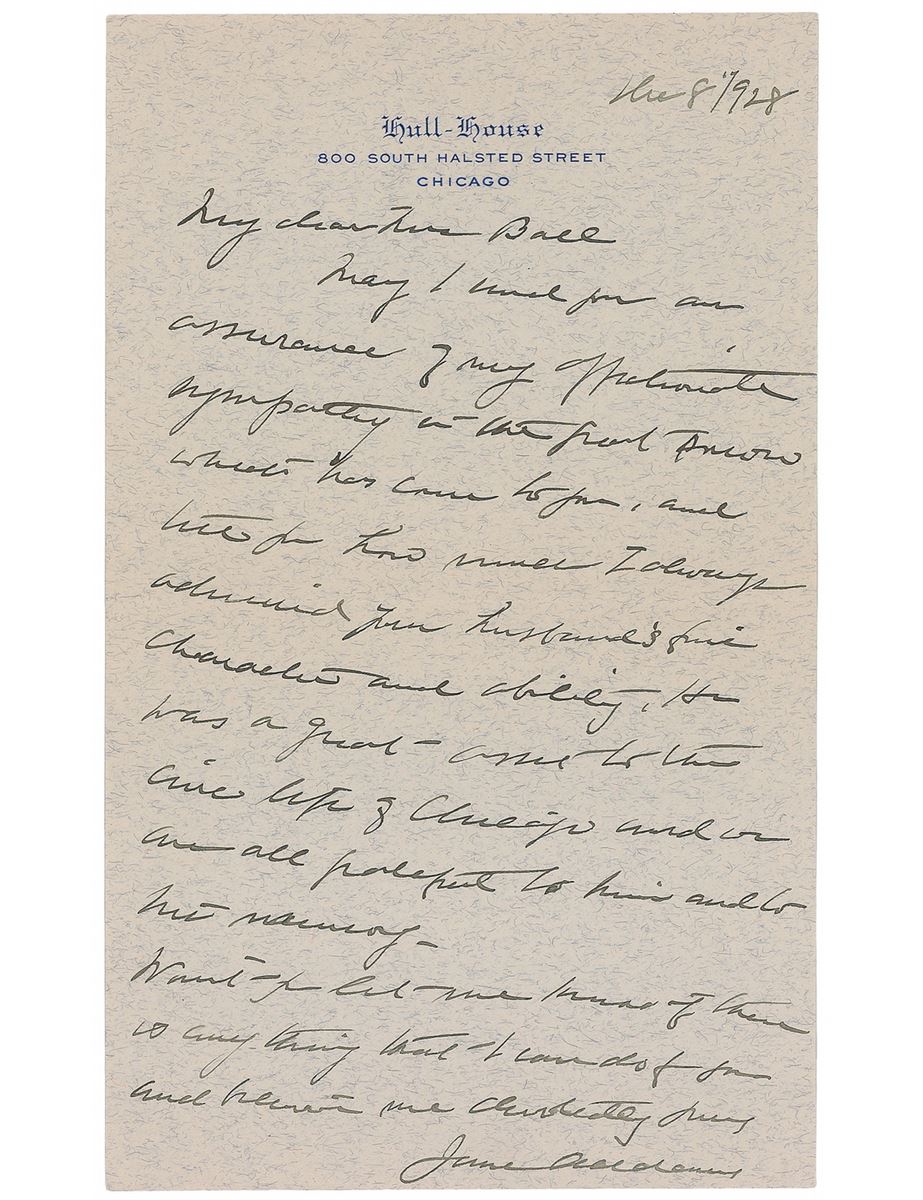 Dec 8" 1928
Hull-House
800 SOUTH HALSTED STREET
CHICAGO
My dear Mrs Ball
May I send you an
assurance of my affectionate
sympathy in the great sorrow
which has come to you, and
tell you how much I always
admired your husband's fine
character and ability. He
was a great asset to the
civic life of Chicago and we
are all grateful to him and to
his memory.
Won't you let me know if there
is anything that I can do for you
and believe me devotedly yours
Jane Addams